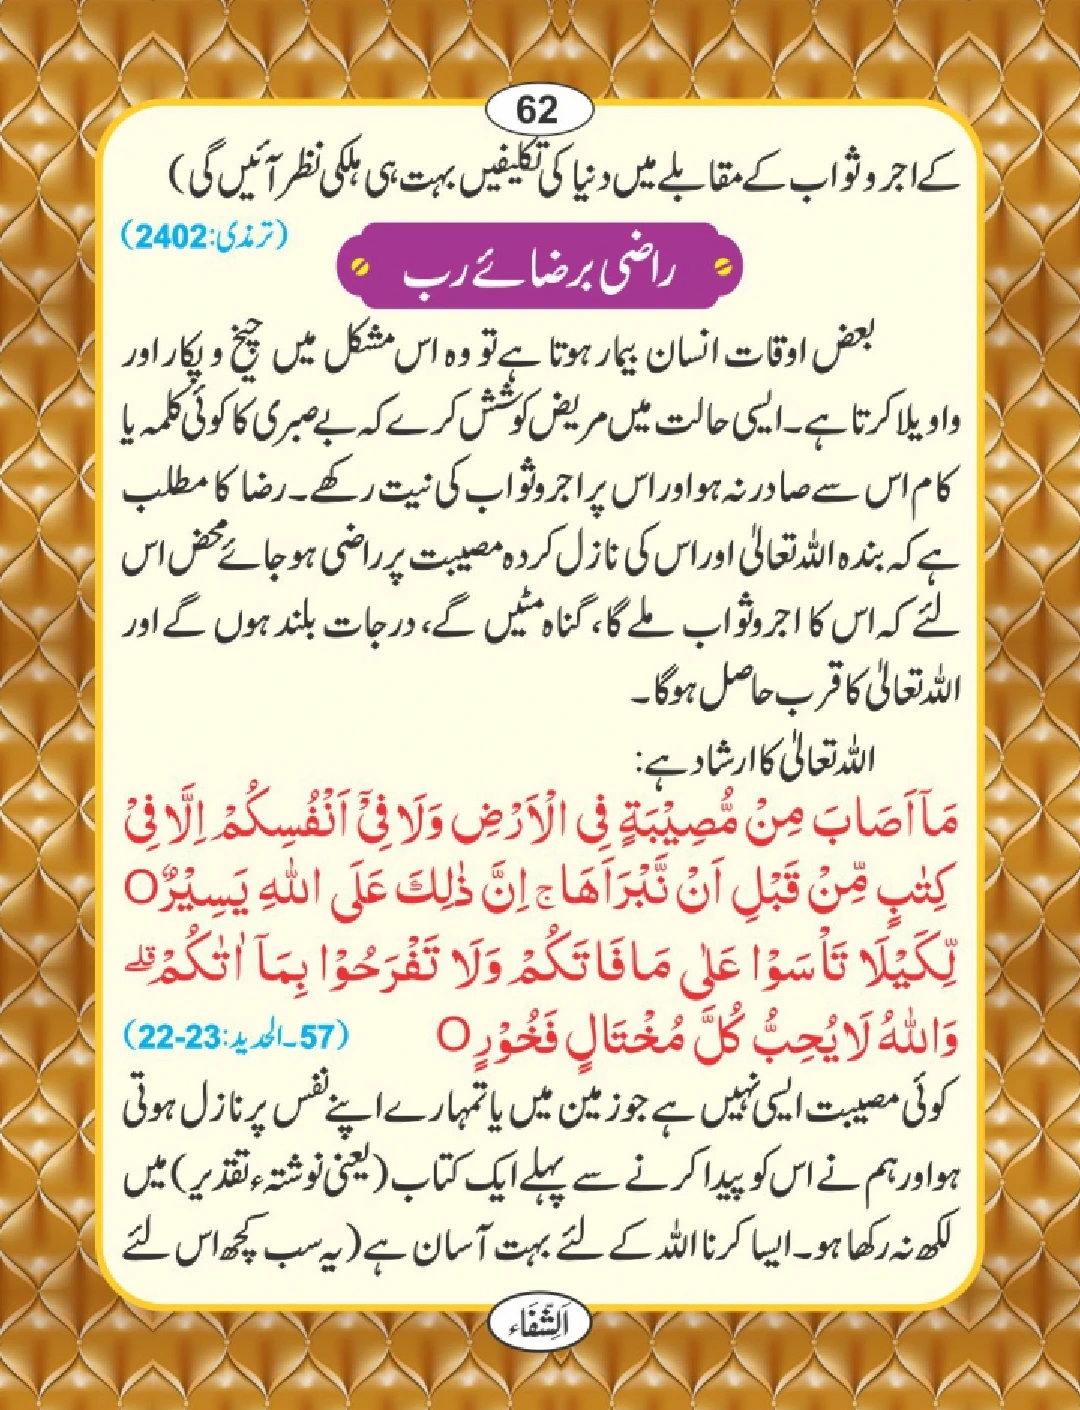 62
کے اجر و ثواب کے مقابلے میں دنیا کی تکلیفیں بہت ہی ہلکی نظر آئیں گی)
(ترمذی:2402)
راضی بر رضائے رب
بعض اوقات انسان بیمار ہوتا ہے تو وہ اس مشکل میں چیخ و پکار اور
واویلا کرتا ہے۔ ایسی حالت میں مریض کوشش کرے کہ بے صبری کا کوئی کلمہ یا
کام اس سے صادر نہ ہو اور اس پر اجر و ثواب کی نیت رکھے۔ رضا کا مطلب
ہے کہ بندہ اللہ تعالیٰ اور اس کی نازل کردہ مصیبت پر راضی ہو جائے محض اس
لئے کہ اس کا اجر و ثواب ملے گا، گناہ مٹیں گے، درجات بلند ہوں گے اور
اللہ تعالیٰ کا قرب حاصل ہوگا۔
اللہ تعالیٰ کا ارشاد ہے:
مَآ اَصَابَ مِنْ مُّصِیْبَةٍ فِی الْاَرْضِ وَلَا فِیْٓ اَنْفُسِکُمْ اِلَّا فِیْ
کِتٰبٍ مِّنْ قَبْلِ اَنْ نَّبْرَاَهَا ج اِنَّ ذٰلِكَ عَلَی اللّٰهِ یَسِیْرٌO
لِّکَیْلَا تَاْسَوْا عَلٰی مَا فَاتَکُمْ وَلَا تَفْرَحُوْا بِمَآ اٰتٰکُمْ قلے
وَاللّٰهُ لَا یُحِبُّ کُلَّ مُخْتَالٍ فَخُوْرٍO (57۔الحدید:22-23)
کوئی مصیبت ایسی نہیں ہے جو زمین میں یا تمہارے اپنے نفس پر نازل ہوتی
ہو اور ہم نے اس کو پیدا کرنے سے پہلے ایک کتاب (یعنی نوشتہء تقدیر) میں
لکھ نہ رکھا ہو۔ ایسا کرنا اللہ کے لئے بہت آسان ہے (یہ سب کچھ اس لئے
اَلشِّفَاء